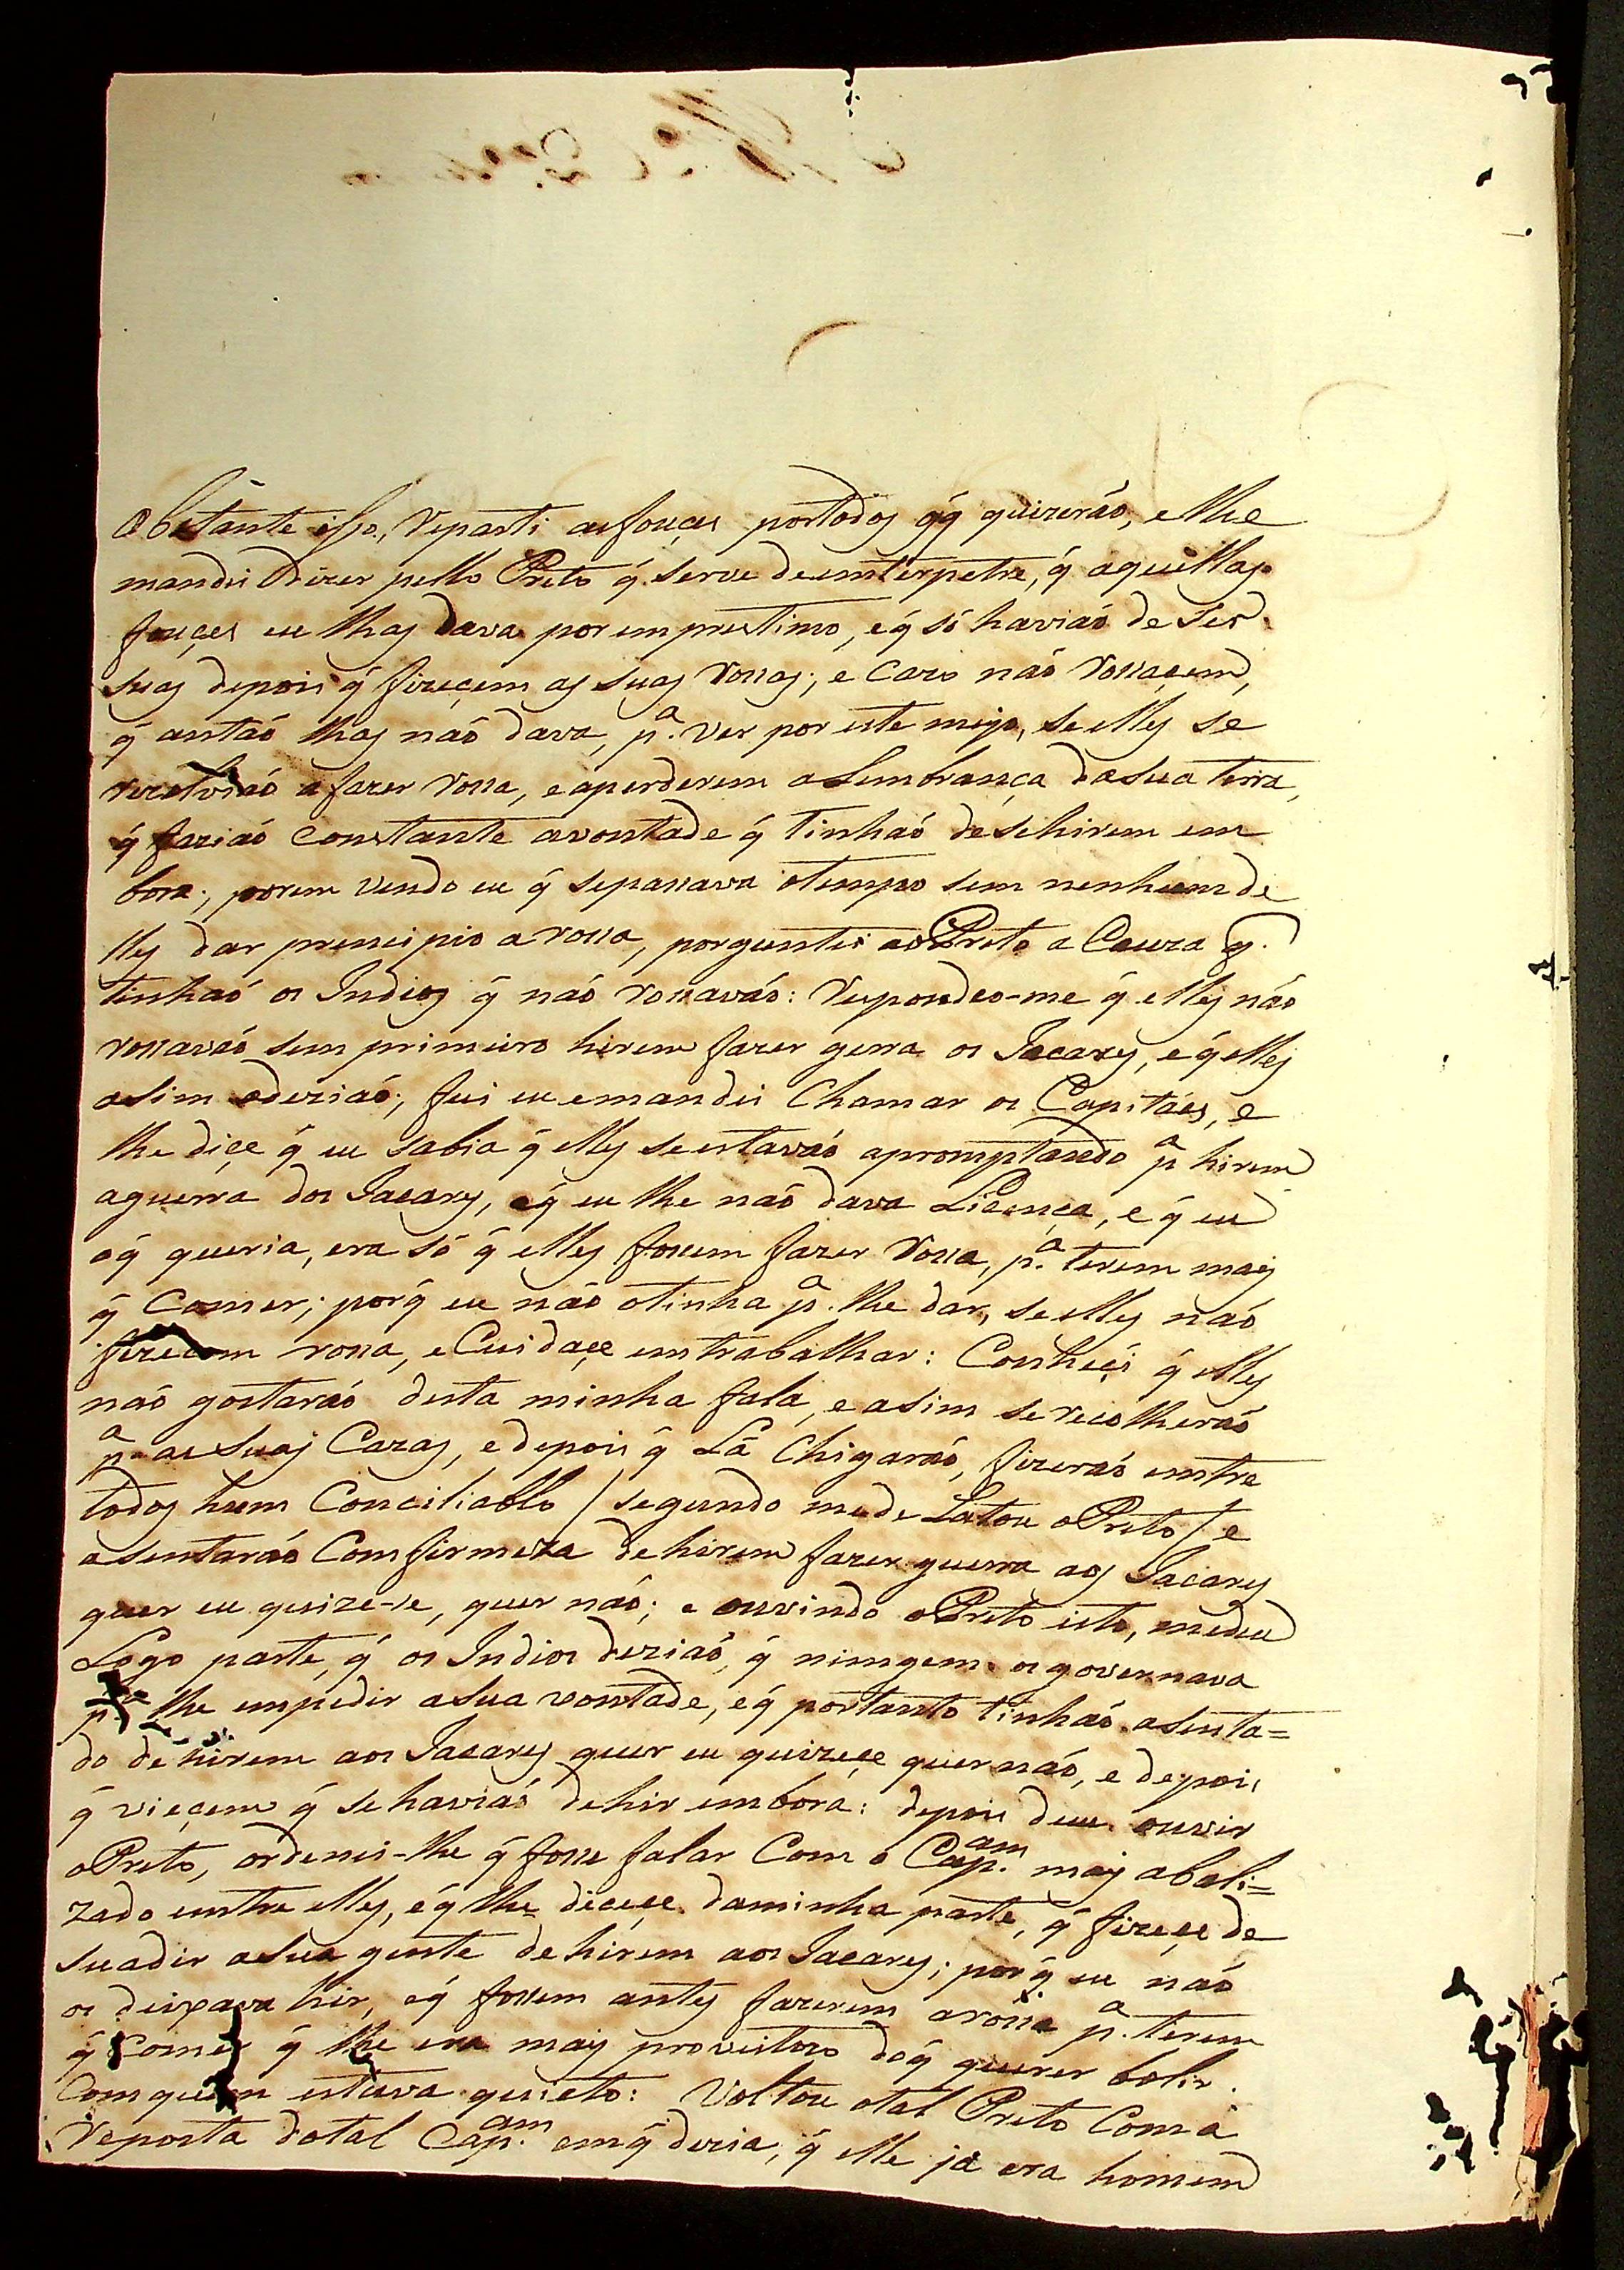 Obstante isso, reparti as fouces por todos q́ q́ quizeraó, e lhe
mandei dizer pello Preto q́ serve de emterpetre, q́ aquellas
fouçes eu lhas dava por emprestimo, e q́ só haviaó de ser
suas depois q́ fizeçem as suas rossas; e cazo naó rossaçem,
q́ antaó lhas naó dava, p.ª ver por este meyo, se elles se
rezolviaó a fazer rossa, e a perderem a lembrança da sua terra,
q́ faziaó constante a vontade q́ tinhaó de se hirem em
bora; porem vendo eu q́ se passava o tempo sem nenhum de
lles dar prencipio a rossa, porguntei ao Preto a Cauza q́.
tinhaó os Indios q́ naó rossavaó: Respondeo-me q́ elles naó
rossavaó sem primeiro hirem fazer gerra os Jacares, e q́ elles
asim o deziaó; fui eu e mandei Chamar os Capitáes, e
lhe diçe q́ eu sabia q́ elles se estavaó apromptando p.ª hirem
a guerra dos Jacares, e q́ eu lhe naó dava Licença, e q́ eu
o q́ queria, era só q́ elles fossem fazer rossa, p.ª terem mais
q́ Comer; porq́ eu naó o tinha p.ª lhe dar, se elles naó
fizeçem rossa, e Cuidaçe em trabalhar: Conheçi q́ elles
naó gostaraó desta minha fala, e asim se recolheraó
p.ª as suas Cazas, e depois q́ Lá Chigaraó, fizeraó emtre
todos hum Conciliablo / segundo me de Latou o Preto / e
asentaraó Com firmeza de hirem fazer guerra aos Jacares
quer eu quize-se, quer naó; e ouvindo o Preto isto, me deu
Logo parte, q́ os Indios deziaó, q́ nimgem os governava
p.ª lhe empedir a sua vontade, e q́ portanto tinhaó asenta=
do de hirem aos Jacares quer eu quizeçe quer naó, e depois
q́ vieçem q́ se haviaó de hir embora: depois de eu ouvir
o Preto, ordenei-lhe q́ fosse falar Com o Cap.am mais abali=
zado emtre elles, e q́ lhe diceçe da minha parte, q́ fizeçe de
suadir a sua gente de hirem aos Jacares; por q́ eu naó
os deixava hir, e q́ fossem antes fazerem a róssa p.ª terem
q́ Comer q́ lhe era mais proveitozo do q́ querer bolir
Com quem estava quieto: Voltou o tal Preto Com a
reposta do tal Cap.am em q́ dezia, q́ elle já era homem